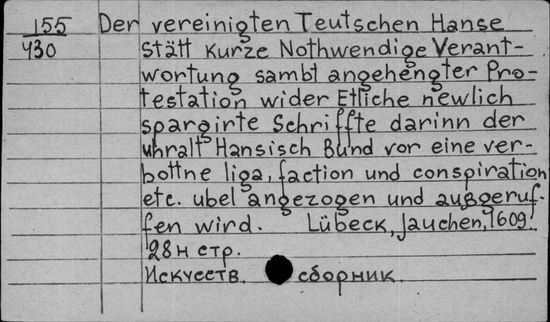 155 Der vereinigten Teutschen Hanse
430 Stätt Kurze Nothwendige Verant-
wortung sambt angehengter Pro-
testation wider Etliche newlich
spargirte Schriffte darinn der
uhralt Hansisch Bund vor eine ver-
bottne liga, faction und conspiration
etc. ubel angezogen und außgeruf-
fen wird. Lübeck, Jauchen, 1609.
28 н стр.
Искусств. сборник.